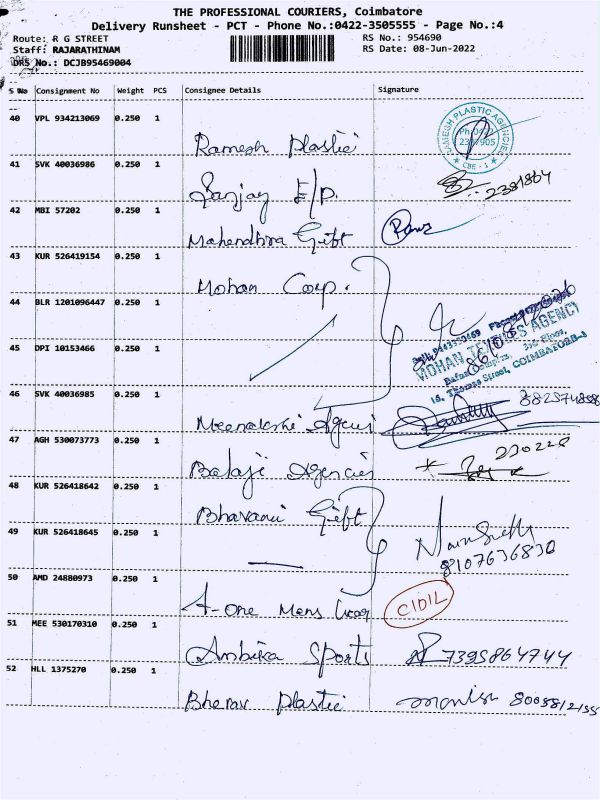 THE PROFESSIONAL COURIERS, Coimbatore
Delivery Runsheet - PCT - Phone No.:0422-3505555 - Page No.:4
Route: R G STREET
RS No.: 954690
Staff: RAJARATHINAM
RS Date: 08-Jun-2022
DRS No.: DCJB95469004
S No Consignment No Weight PCS Consignee Details Signature
40 VPL 934213069 0.250 1
Ramesh Plastic
UMESH PLASTIC AGENCIES
CBE - 1
41 SVK 40036986 0.250 1
Sanjay E/P. 2381864
42 MBI 57202 0.250 1
Mahendhra Gift
43 KUR 526419154 0.250 1
Mohan Corp.
44 BLR 1201096447 0.250 1
MOHAN AGENCY
15, Thomas Street, COIMBATORE-1
45 DPI 10153466 0.250 1
46 SVK 40036985 0.250 1
Meenakshi
47 AGH 530073773 0.250 1
Balaji Agencies 230228
48 KUR 526418642 0.250 1
Bhavani Gift
49 KUR 526418645 0.250 1
8107636830
50 AMD 24880973 0.250 1
A-One Mens Wear
51 MEE 530170310 0.250 1
Ambika Sports 7395864744
52 HLL 1375270 0.250 1
Bherav Plastic